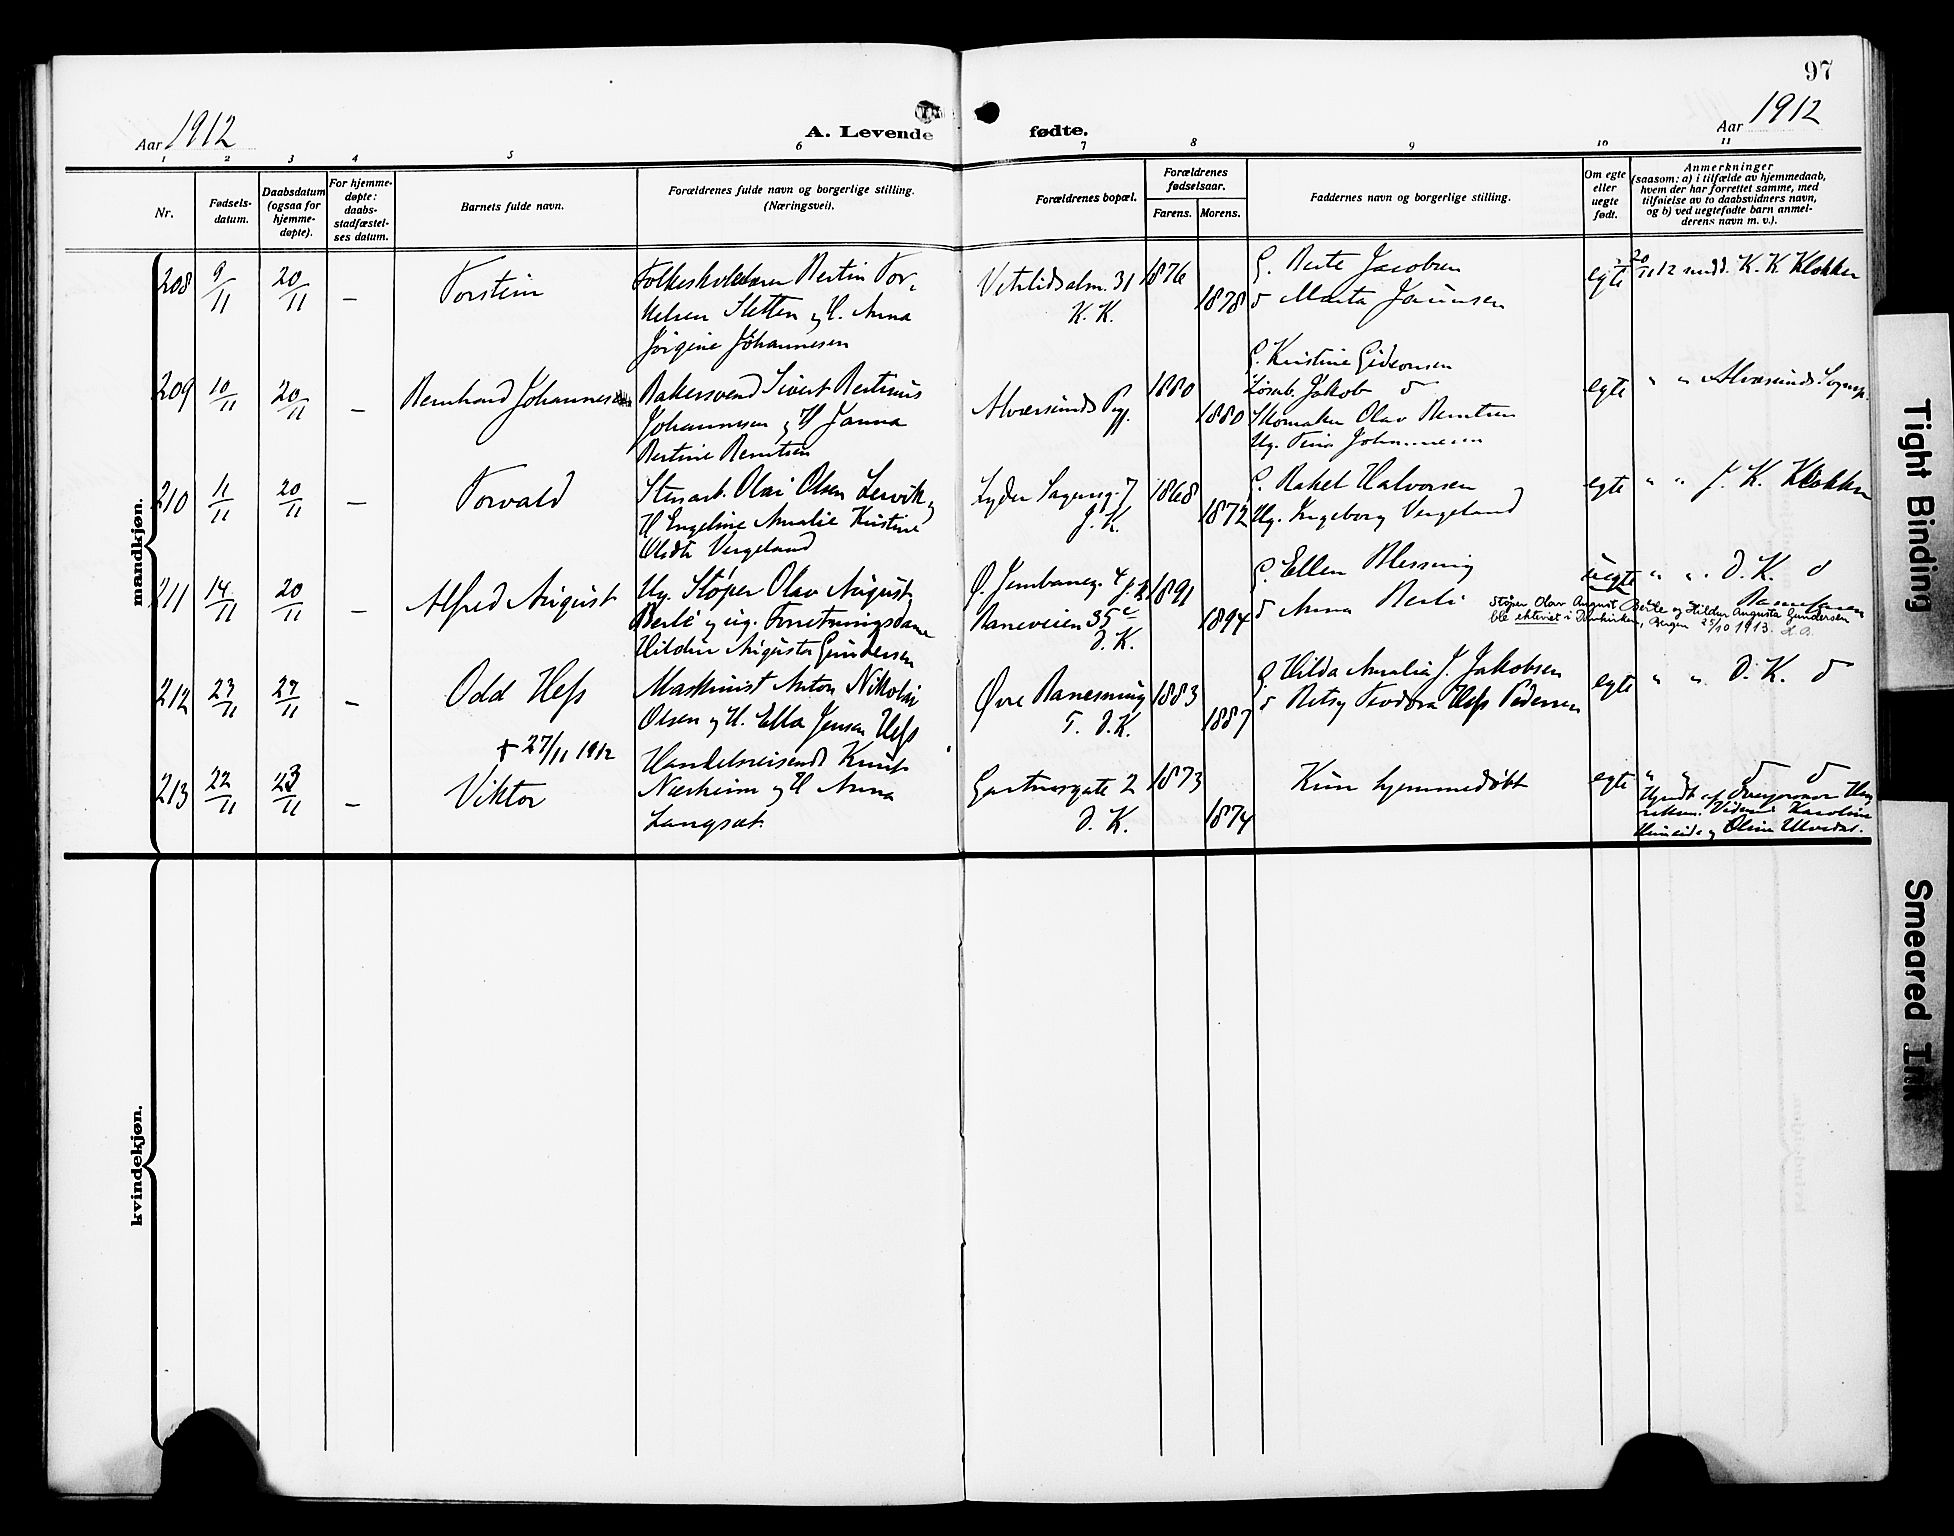 97
Aar 1912
A. Levende fødte.
Aar 1912
1 2 3 4 5 6 7 8 9 10 11
Nr.
Fødsels-
datum.
Daabsdatum
(ogsaa for
hjemme-
døpte).
For hjemme-
døpte:
daabs-
stadfæstel-
ses datum.
Barnets fulde navn.
Forældrenes fulde navn og borgerlige stilling.
(Næringsvei).
Forældrenes bopæl.
Forældrenes
fødselsaar.
Farens. Morens.
Faddernes navn og borgerlige stilling.
Om egte
eller
uegte
født.
Anmerkninger
(saasom: a) i tilfælde av hjemmedaab,
hvem der har forrettet samme, med
tilføielse av to daabsvidners navn,
og b) ved uegtefødte barn anmel-
derens navn m. v.).
mandkjøn.
208 9/11 20/11 – Torstein
Folkeskolelærer Bertin Tor-
kelsen Sletten og H. Anna
Jørgine Johannesen
Vetrlidsalm. 31
K. K.
1876 1878
G. Berte Jacobsen
Marta
egte 20/11 12 medd. K. K. Klokker
209 10/11 20/11 – Bernhard Johannes
Bakersvend Sivert Bertinus
Johannesen og H. Janna
Bertine Berntsen
Alversunds Pgj.
1880 1880
G. Kristine Gideonsen
Løsarb. Jakob
Skomaker Olav Berntsen
Ug. Tina Johannesen
egte " " Alversunds Sognep.
210 11/11 20/11 – Torvald
Stenarb. Olai Olsen Lervik og
H Engeline Amalie Kristine
Vergeland
Lyder Sagensg. 7
J. K.
1868 1872
G. Rakel Halvorsen
Ug. Ingeborg Vergeland
egte " " J. K. Klokker
211 14/11 20/11 – Alfred August
Ug. Støper Olav August
Berle og ug. Forretningsdame
Hildur Augusta Gundersen
Ø. Jernbaneg. 4 J. K.
Baneveien 35c
D. K.
1891 1894
G. Ellen Blessing
Anna Berle
uegte " " D. K.
Støper Olav August Berle og Hildur Augusta Gundersen
ble ekteviet i Domkirken, Bergen 25/10 1913.
212 23/11 27/11 – Odd Hess
+ 27/11 1912
Maskinist Anton Nikolai
Olsen og H. Ella Jensen Hess
Øvre Banesmug
D. K.
1883 1887
G. Hilda Amalia J. Jakobsen
Betsy Teodora Hess Pedersen
egte " " D. K.
213 22/11 23/11 – Viktor
Handelsreisende Knut
Nærheim og H Anna
Langsæt.
Gartnergate 2
D. K.
1873 1874
Kun hjemmedøbt
egte " "
Hjdt af Overjordmor Hen-
riksen. Vidner: Karoline
og Oline Ulvedal.
kvindekjøn.
Tight Binding
Smeared Ink